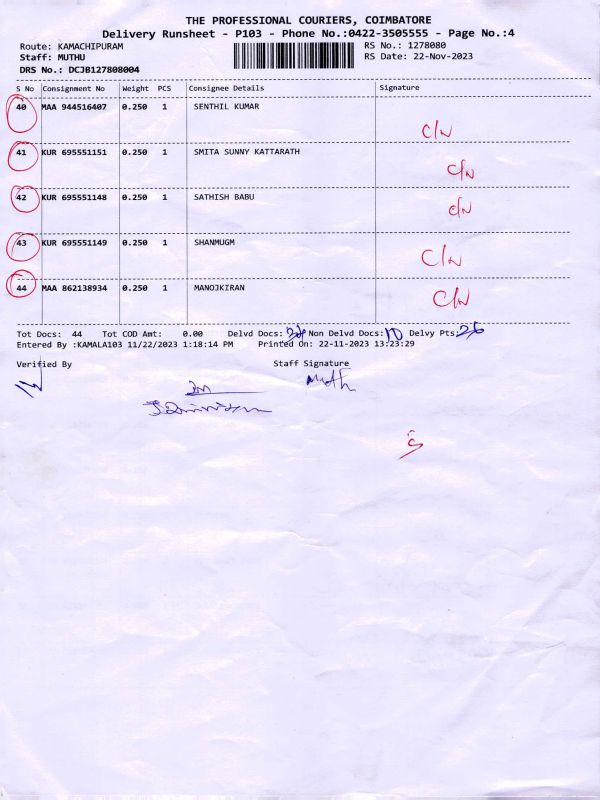 THE PROFESSIONAL COURIERS, COIMBATORE
Delivery Runsheet - P103 - Phone No.:0422-3505555 - Page No.:4
Route: KAMACHIPURAM RS No.: 1278080
Staff: MUTHU RS Date: 22-Nov-2023
DRS No.: DCJB127808004
S No Consignment No Weight PCS Consignee Details Signature
40 MAA 944516407 0.250 1 SENTHIL KUMAR
C/N
41 KUR 695551151 0.250 1 SMITA SUNNY KATTARATH
C/N
42 KUR 695551148 0.250 1 SATHISH BABU
C/N
43 KUR 695551149 0.250 1 SHANMUGM
C/N
44 MAA 862138934 0.250 1 MANOJKIRAN
C/N
Tot Docs: 44 Tot COD Amt: 0.00 Delvd Docs: Non Delvd Docs: 10 Delvy Pts: 26
Entered By :KAMALA103 11/22/2023 1:18:14 PM Printed On: 22-11-2023 13:23:29
Verified By Staff Signature
Muth